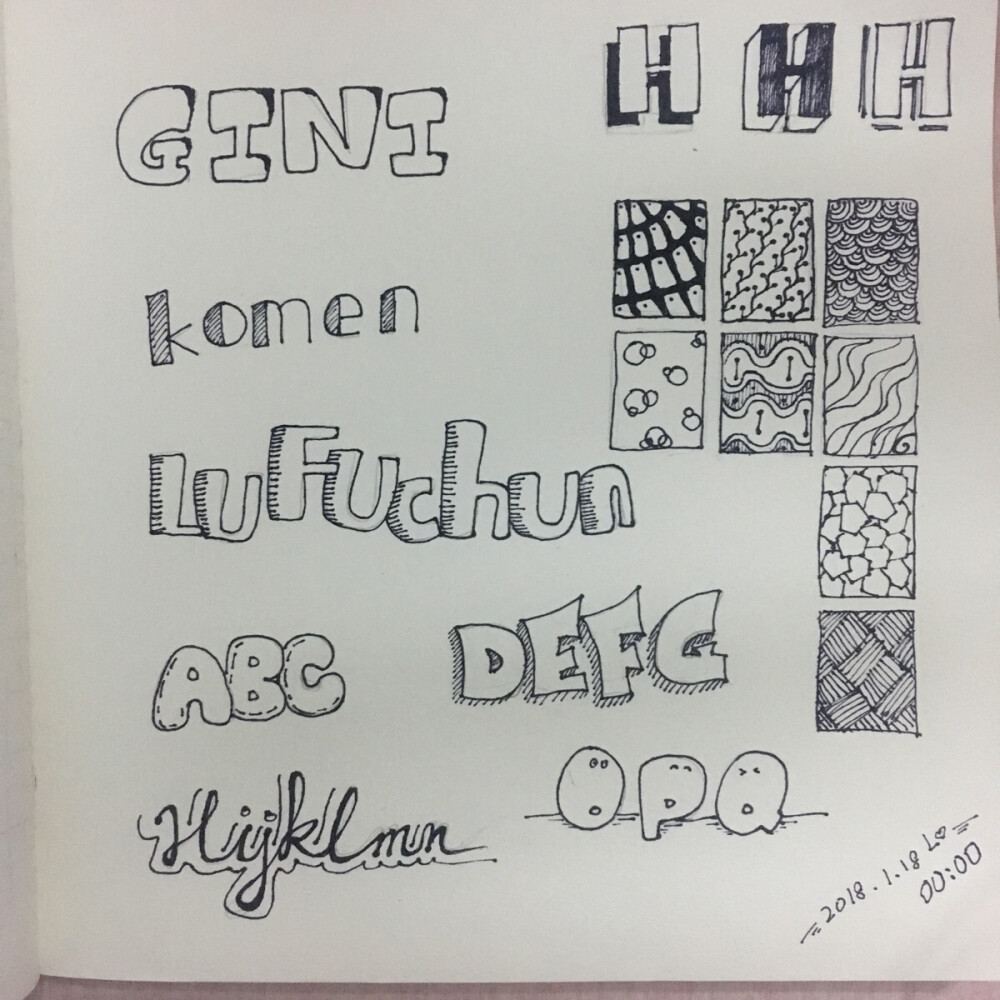 GINI
H H H
komen
LuFuchun
ABC
DEFG
Hijklmn
OPQ
2018.1.18 L♡
00:00